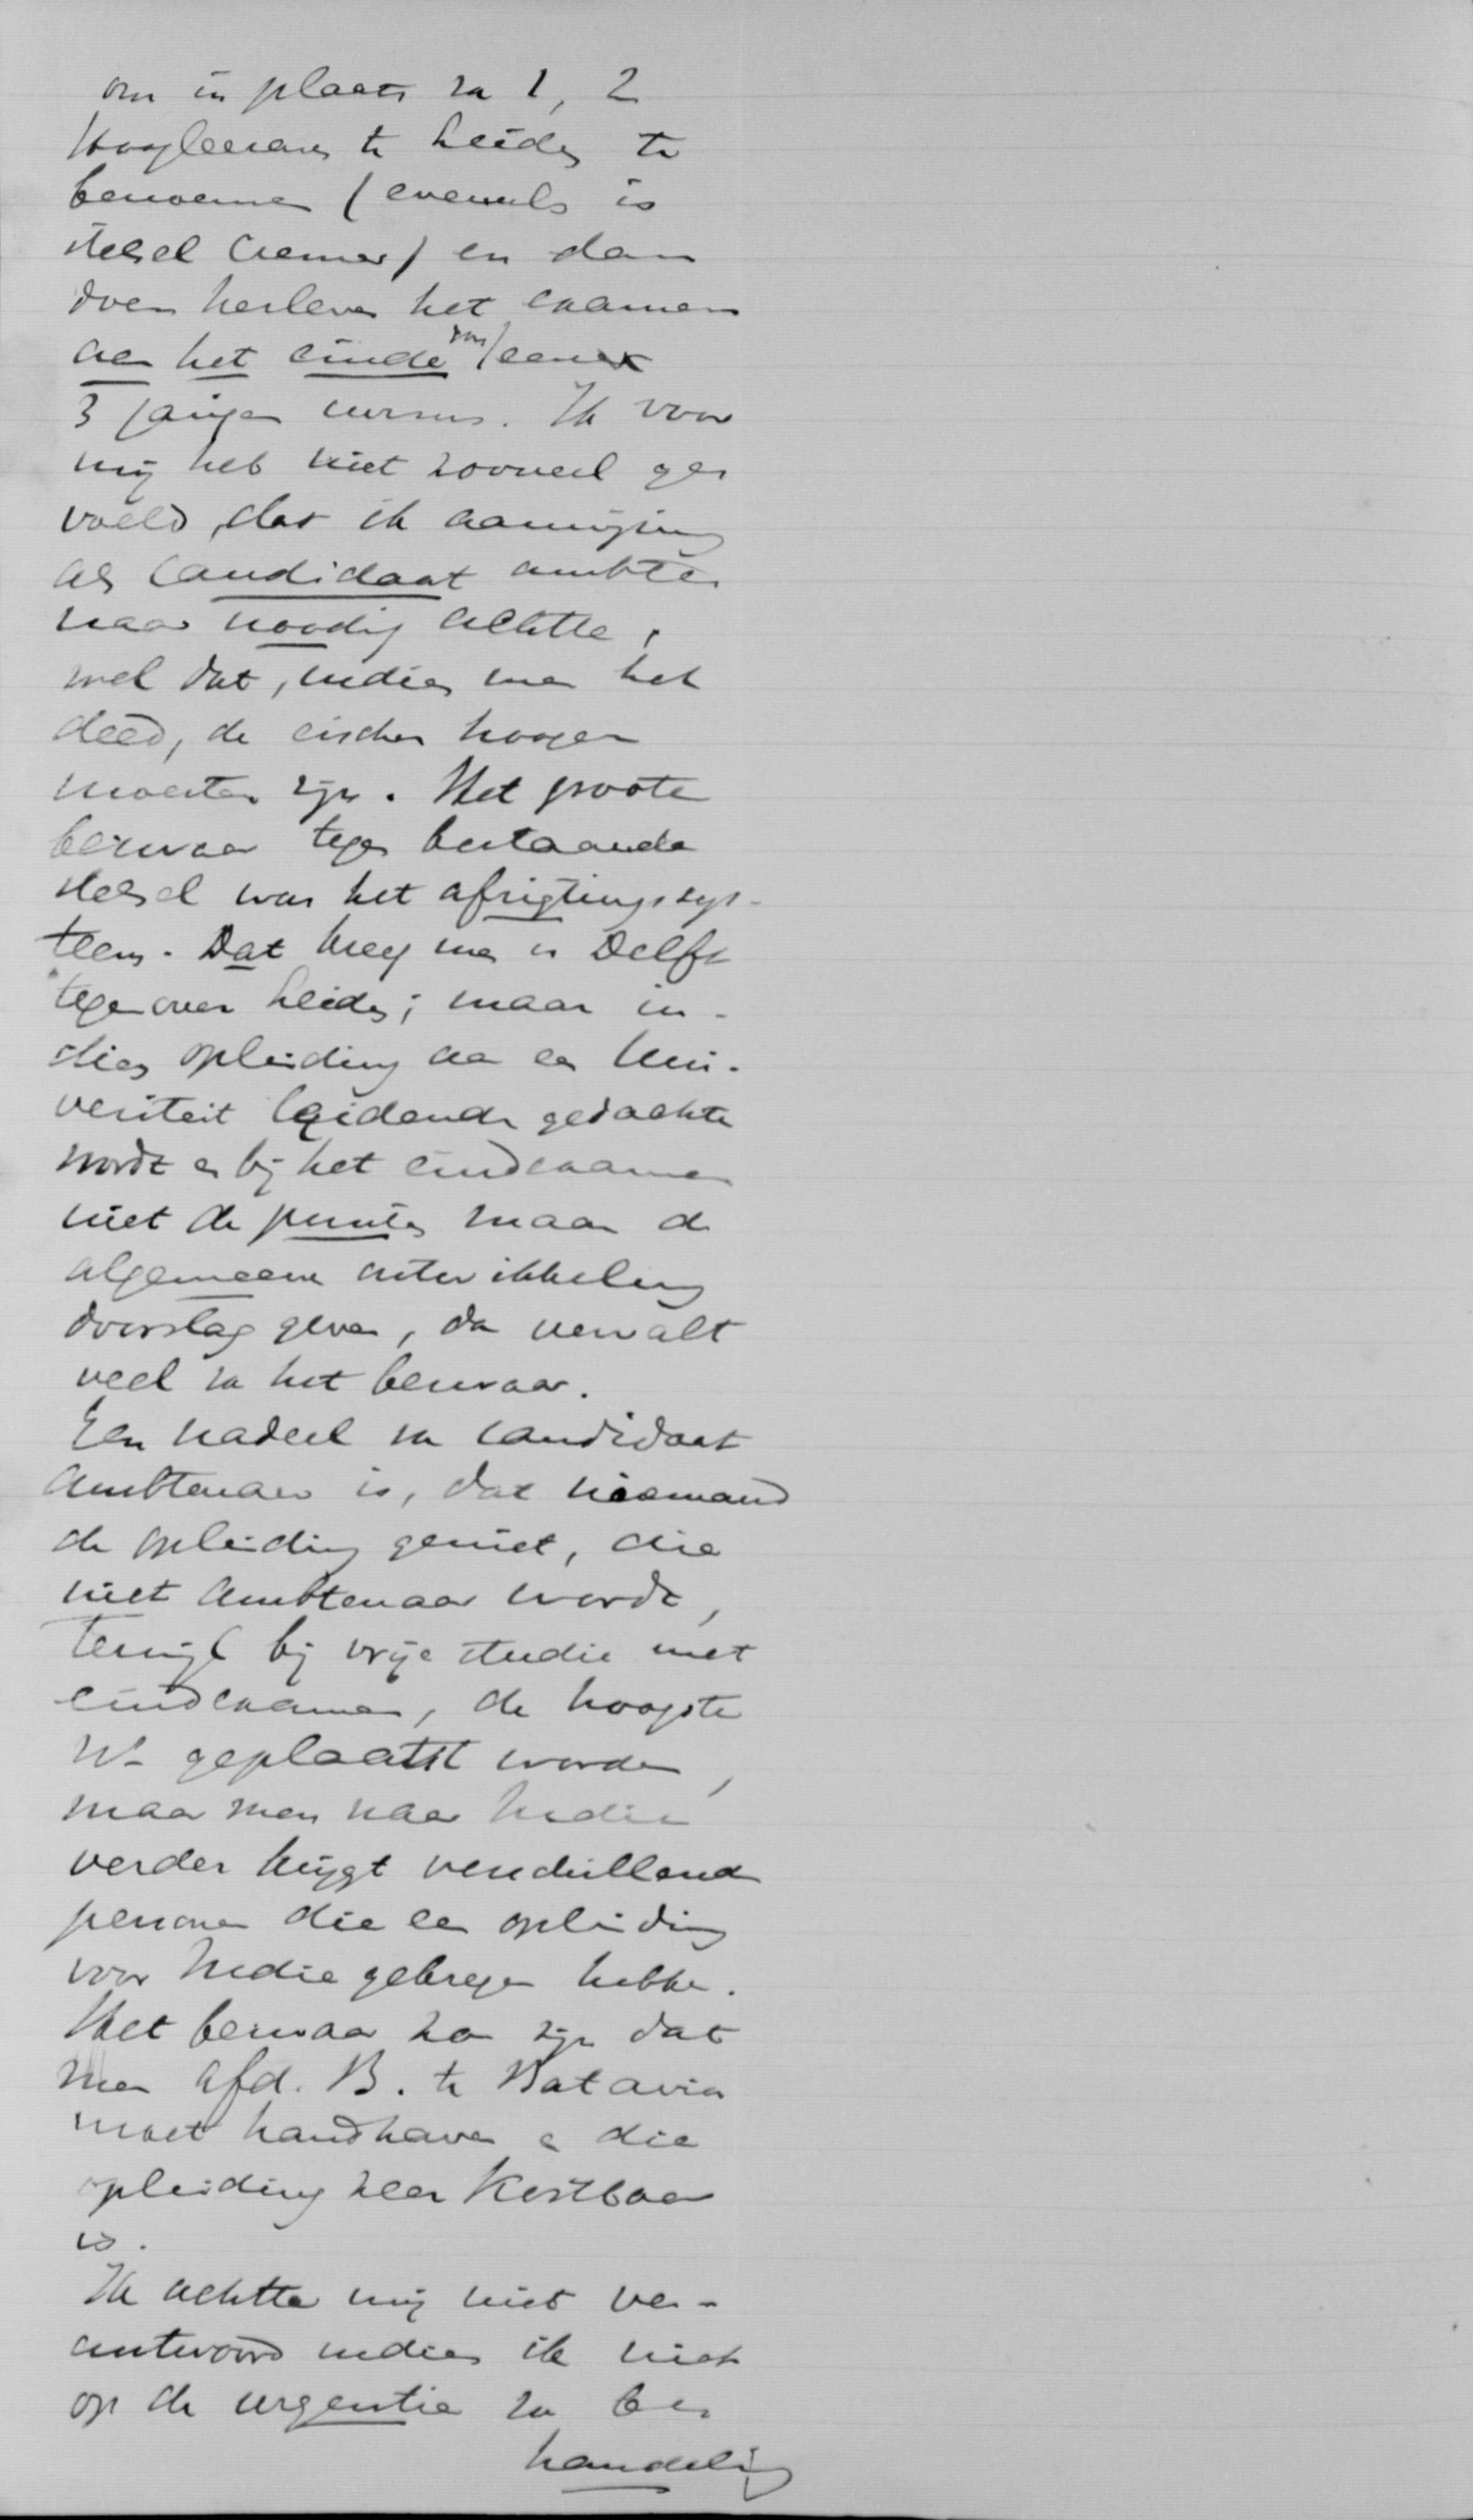 om in plaats van 1, 2
Hoogleeraren te Leiden te
benoemen (evenals in
stelsel Cremer) en dan
doen herleven het examen
aan het einde van eener
3 jarigen cursus. Ik voor
mij heb niet zooveel ge-
voeld, dat ik aanwijzing
als candidaat ambte-
naar noodig achtte,
wel dat, indien men het
deed, de eischen hooger
moesten zijn. Het groote
bezwaar tegen bestaande
stelsel was het afrigtingssys-
teem. Dat kreeg men in Delft
tegenover Leiden; maar in-
dien opleiding aan een Uni-
versiteit leidende gedachte
wordt en bij het eindexamen
niet de punten maar de
algemeene ontwikkeling
doorslag geven, dan vervalt
veel van het bezwaar.
Een nadeel van candidaat
ambtenaar is, dat niemand
de opleiding geniet, die
niet ambtenaar wordt,
terwijl bij vrije studie met
eindexamen, de hoogste
No geplaatst worden,
maar men naar Indie
verder krijgt verschillende
personen die een opleiding
voor Indie gekregen hebben.
Het bezwaar zou zijn dat
men afd. B. te Batavia
moet handhaven en die
opleiding zeer kostbaar
is.
Ik achtte mij niet ver-
antwoord indien ik niet
op de urgentie van be-
handeling